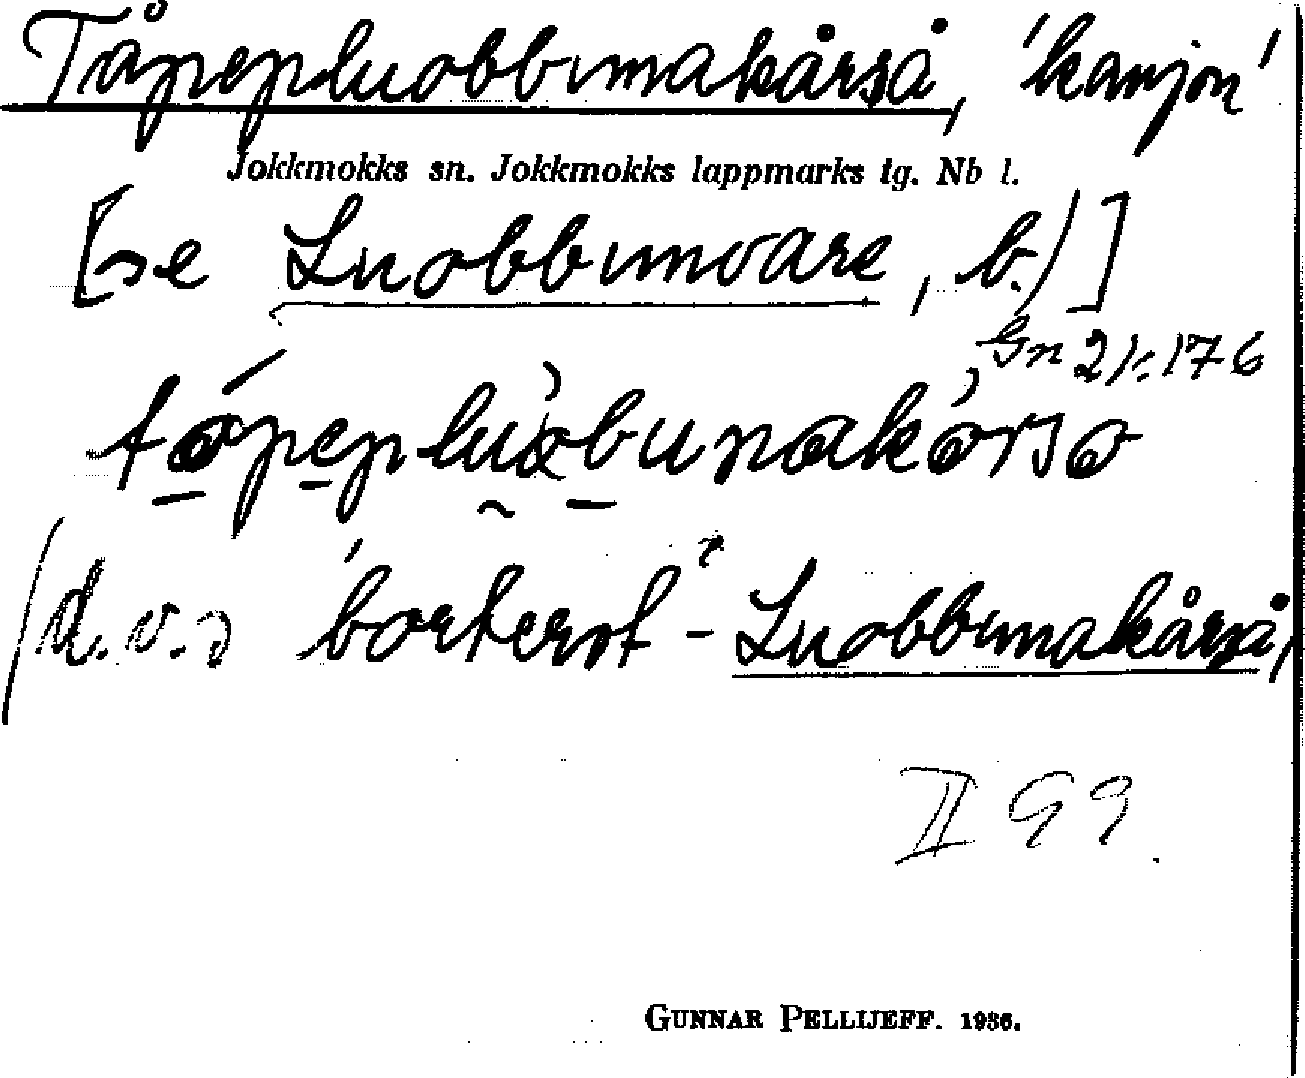 Tåpepluobbumakårså, 'kanjon'
Jokkmokks sn. Jokkmokks lappmarks tg. Nb l.
[se Luobbumvare, b.)]
Gn 21:176
(d.v.s 'borterst'-Luobbumakårså)
II 99.
GUNNAR PELLIJEFF. 1936.